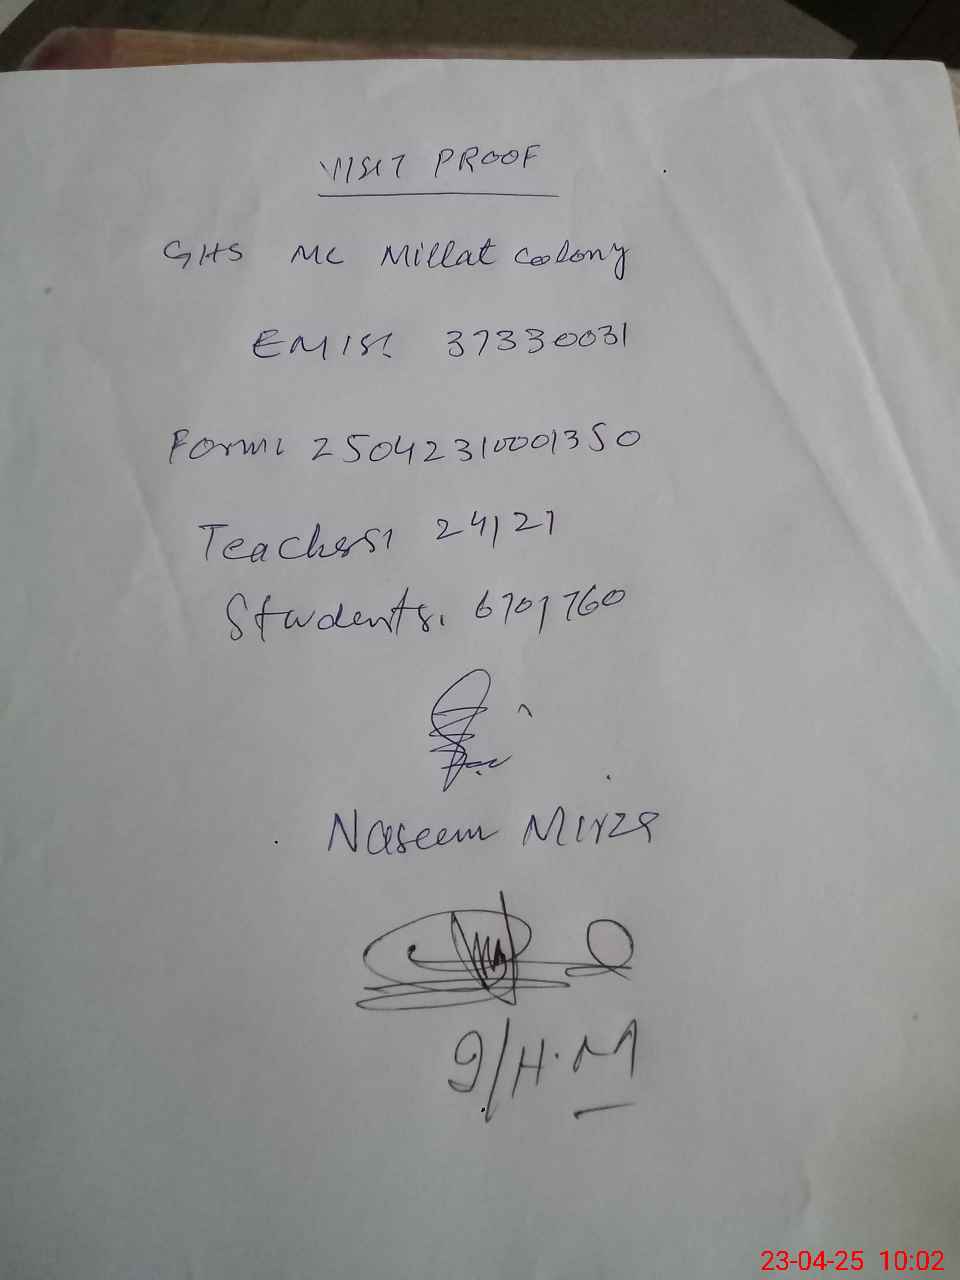 VISIT PROOF
GHS MC Millat Colony
EMIS: 37330031
Form: 25042310001350
Teachers: 24/27
Students: 670/760
Naseem Mirza
I/H.M
23-04-25 10:02